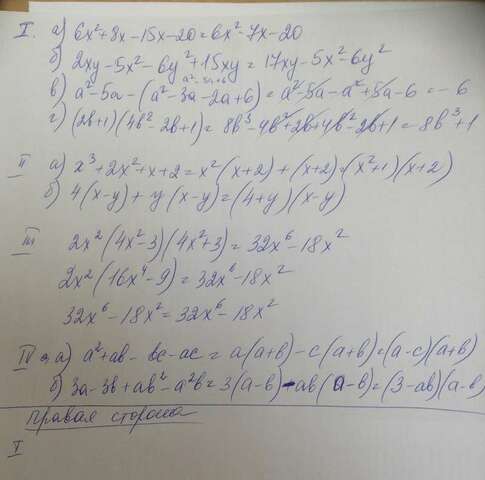 I. а) 6x²+8x-15x-20=6x²-7x-20
б) 2xy-5x²-6y²+15xy=17xy-5x²-6y²
в) a²-5a-(a²-3a-2a+6)=a²-5a-a²+5a-6=-6
г) (2b+1)(4b²-2b+1)=8b³-4b²+2b+4b²-2b+1=8b³+1
II а) x³+2x²+x+2=x²(x+2)+(x+2)=(x²+1)(x+2)
б) 4(x-y)+y(x-y)=(4+y)(x-y)
III 2x²(4x²-3)(4x²+3)=32x⁶-18x²
2x²(16x⁴-9)=32x⁶-18x²
32x⁶-18x²=32x⁶-18x²
IV а) a²+ab-bc-ac=a(a+b)-c(a+b)=(a-c)(a+b)
б) 3a-3b+ab²-a²b=3(a-b)-ab(a-b)=(3-ab)(a-b)
Правая сторона
I